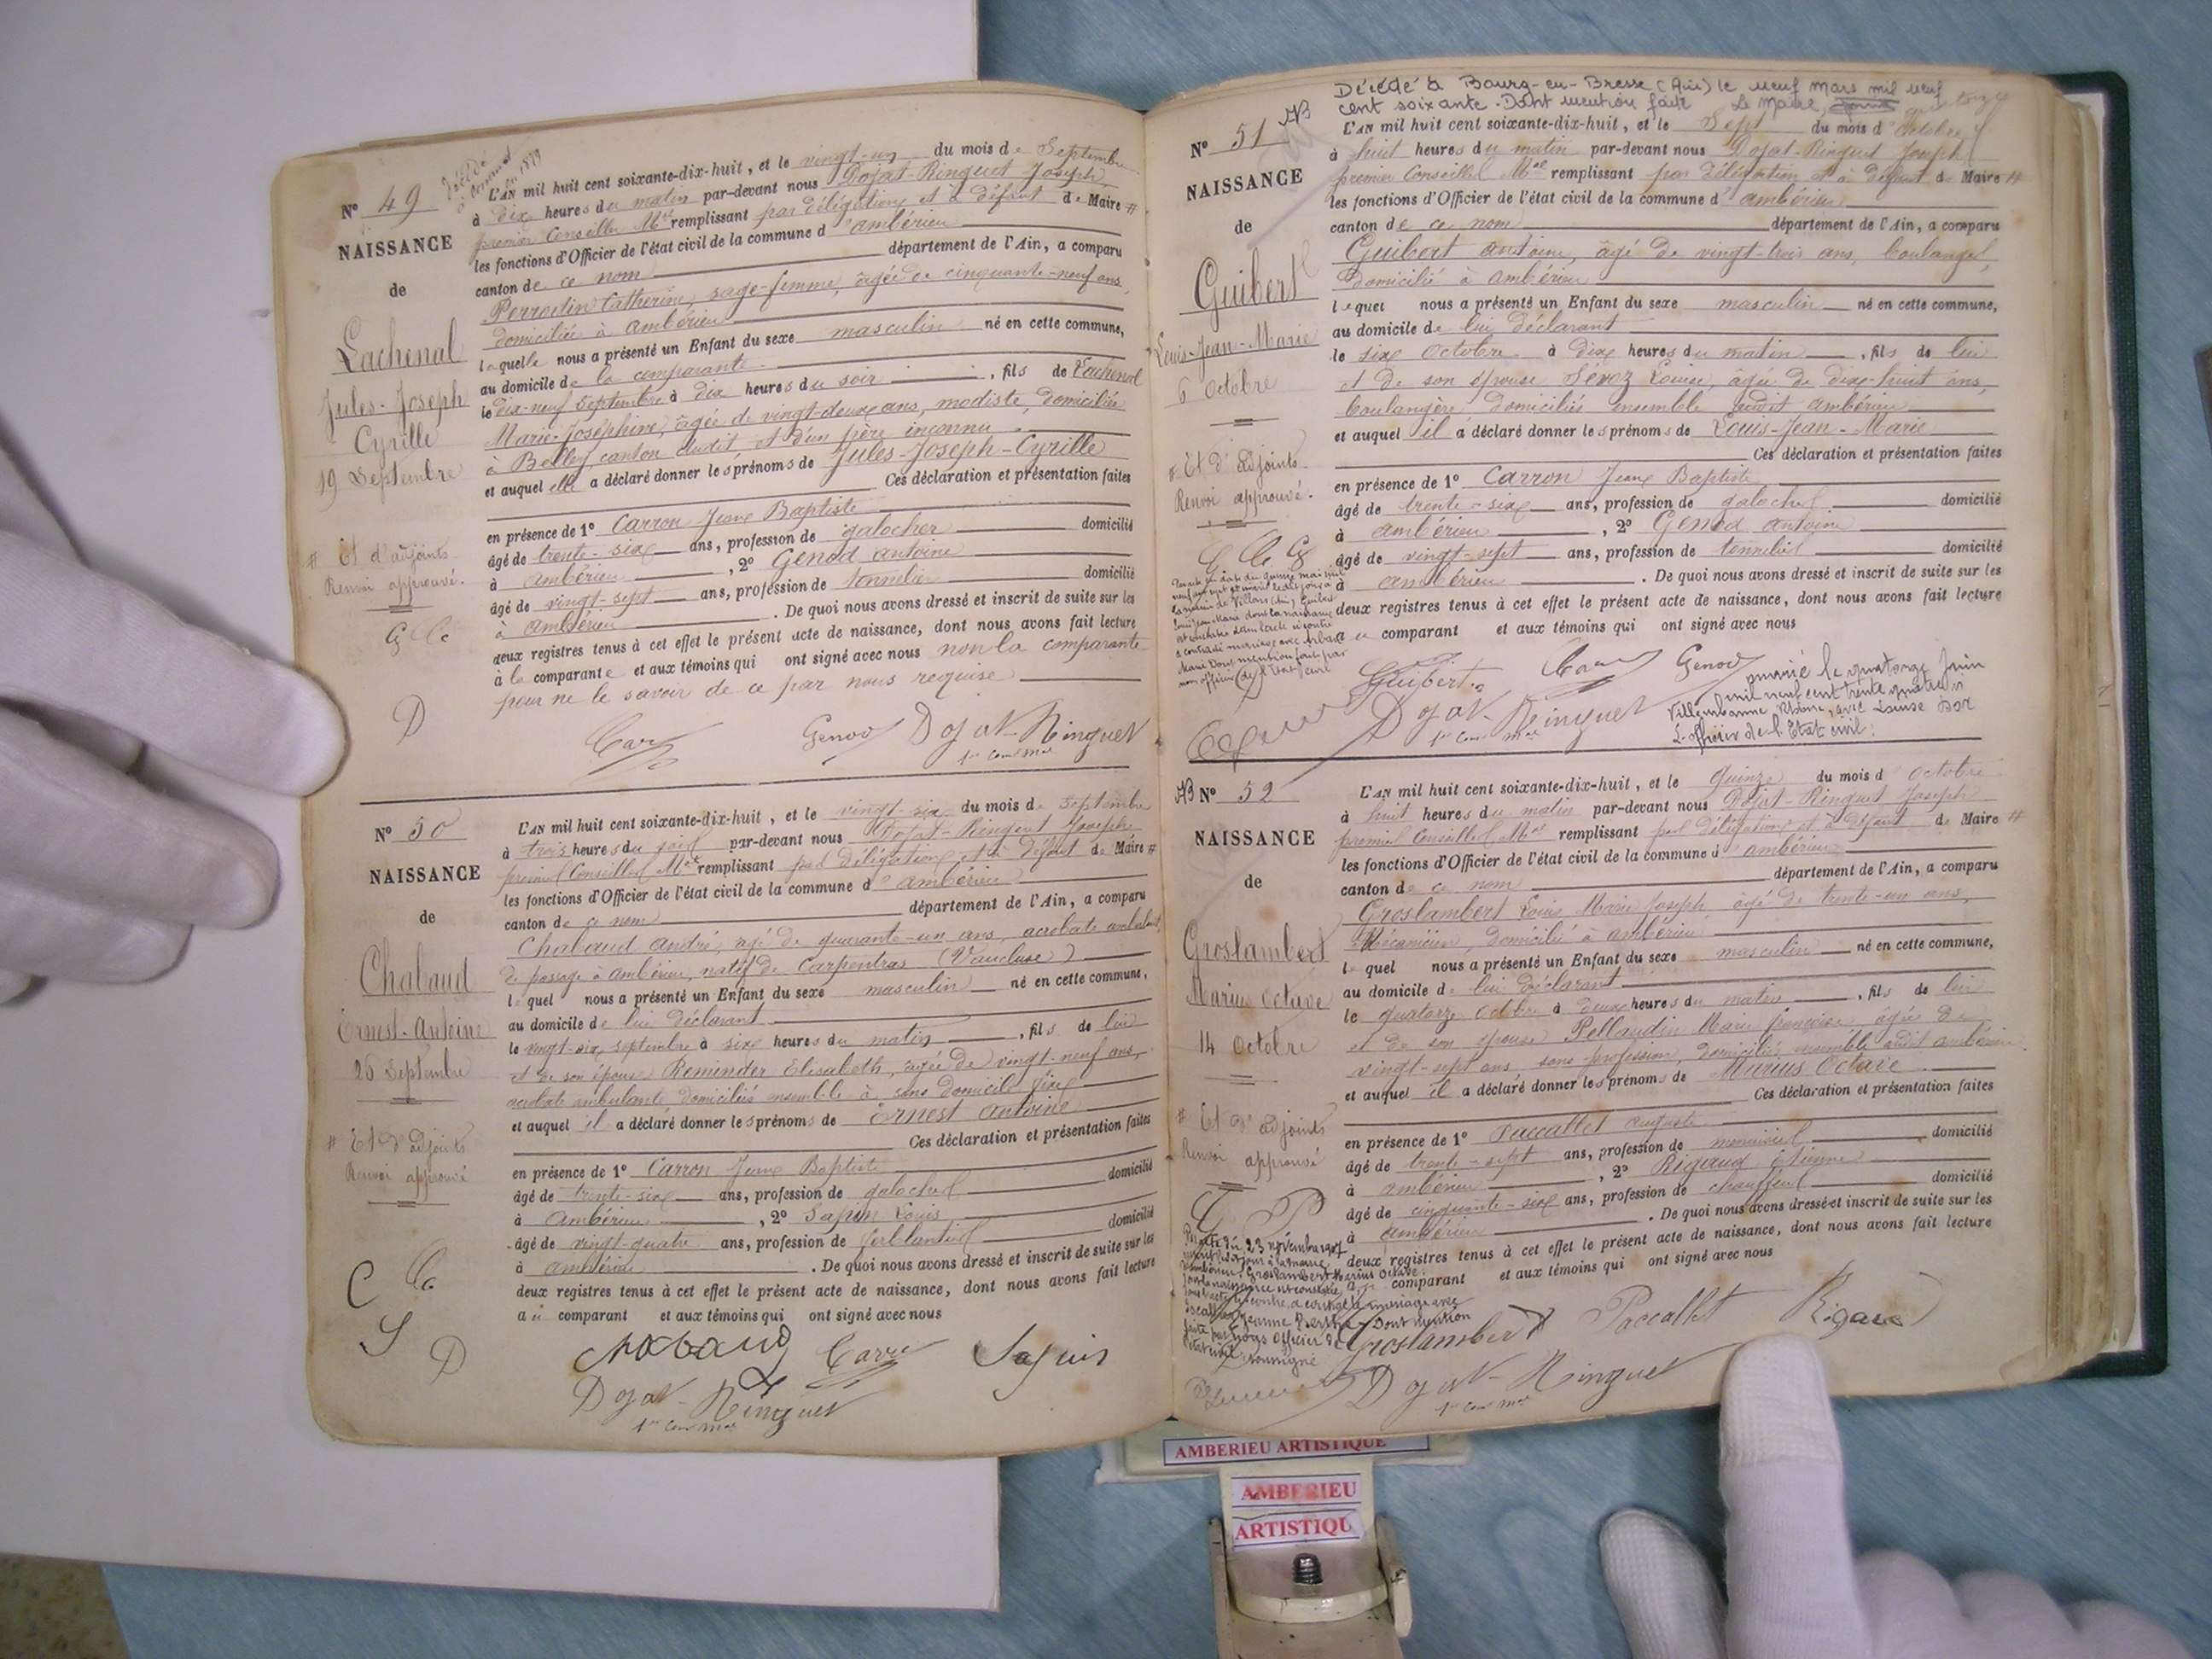 N° 49
NAISSANCE
de
Lachenal
Jules-Joseph
Cyrille
19 Septembre
# Et d'adjoints
Renvoi approuvé.
G Ca
D
L'AN mil huit cent soixante-dix-huit, et le vingt-un du mois de Septembre
à dix heures du matin par-devant nous Dojat-Ringuet Joseph
premier Conseiller Mal remplissant par délégation et à défaut de Maire #
les fonctions d'Officier de l'état civil de la commune d'ambérieu
canton de ce nom département de l'Ain, a comparu
Perrodin Catherine, sage-femme, âgée de cinquante-neuf ans,
domiciliée à ambérieu
laquelle nous a présenté un Enfant du sexe masculin né en cette commune,
au domicile de la comparante
le dix-neuf Septembre à dix heures du soir, fils de Lachenal
Marie-Joséphine, âgée de vingt-deux ans, modiste, domiciliée
à Belley, canton dudit et d'un père inconnu
et auquel elle a déclaré donner les prénoms de Jules-Joseph-Cyrille
Ces déclaration et présentation faites
en présence de 1° Carron Jean Baptiste
âgé de trente-six ans, profession de galocher domicilié
à ambérieu, 2° Genod antoine
âgé de vingt-sept ans, profession de tonnelier domicilié
à ambérieu. De quoi nous avons dressé et inscrit de suite sur les
deux registres tenus à cet effet le présent acte de naissance, dont nous avons fait lecture
à la comparante et aux témoins qui ont signé avec nous non la comparante
pour ne le savoir de ce par nous requise
Genod Dojat-Ringuet
N° 50
NAISSANCE
de
Chabaud
Ernest-Antoine
26 Septembre
# Et d'adjoints
Renvoi approuvé
C Ca
S D
L'AN mil huit cent soixante-dix-huit, et le vingt-six du mois de Septembre
à trois heures du soir par-devant nous Dojat-Ringuet Joseph
premier Conseiller Mal remplissant par délégation et à défaut de Maire #
les fonctions d'Officier de l'état civil de la commune d'ambérieu
canton de ce nom département de l'Ain, a comparu
Chabaud andré, agé de quarante-un ans, acrobate ambulant,
de passage à ambérieu, natif de Carpentras (Vaucluse)
lequel nous a présenté un Enfant du sexe masculin né en cette commune,
au domicile de lui déclarant
le vingt-six septembre à six heures du matin, fils de lui
et de son épouse Reminder Elisabeth, âgée de vingt-neuf ans,
acrobate ambulante domiciliés ensemble à sans domicile fixe
et auquel il a déclaré donner les prénoms de Ernest antoine
Ces déclaration et présentation faites
en présence de 1° Carron Jean Baptiste
âgé de trente-six ans, profession de galocher domicilié
à Ambérieu, 2° Sapin Louis
âgé de vingt-quatre ans, profession de ferblantier domicilié
à ambérieu. De quoi nous avons dressé et inscrit de suite sur les
deux registres tenus à cet effet le présent acte de naissance, dont nous avons fait lecture
au comparant et aux témoins qui ont signé avec nous
Chabaud Sapin
Dojat-Ringuet
Décédé à Bourg-en-Bresse (Ain) le neuf mars mil neuf
cent soixante. Dont mention faite Le Maire,
N° 51
NAISSANCE
de
Guibert
Louis-Jean-Marie
6 Octobre
# Et d'adjoints
Renvoi approuvé.
L'AN mil huit cent soixante-dix-huit, et le Sept du mois d'Octobre
à huit heures du matin par-devant nous Dojat-Ringuet Joseph
premier Conseiller Mal remplissant par délégation et à défaut de Maire #
les fonctions d'Officier de l'état civil de la commune d'ambérieu
canton de ce nom département de l'Ain, a comparu
Guibert antoine, âgé de vingt-trois ans, boulanger,
domicilié à Ambérieu
lequel nous a présenté un Enfant du sexe masculin né en cette commune,
au domicile de lui déclarant
le six Octobre à dix heures du matin, fils de lui
et de son épouse Sévoz Louise, âgée de dix-huit ans,
boulangère, domiciliés ensemble audit ambérieu
et auquel il a déclaré donner les prénoms de Louis-Jean-Marie
Ces déclaration et présentation faites
en présence de 1° Carron Jean Baptiste
âgé de trente-six ans, profession de galocher domicilié
à ambérieu, 2° Genod antoine
âgé de vingt-sept ans, profession de tonnelier domicilié
à ambérieu. De quoi nous avons dressé et inscrit de suite sur les
deux registres tenus à cet effet le présent acte de naissance, dont nous avons fait lecture
au comparant et aux témoins qui ont signé avec nous
Guibert Genod
Dojat-Ringuet
marié le quatorze Juin
mil neuf cent trente quatre à
Villeurbanne, Rhône, avec Louise
L'officier de l'Etat civil:
N° 52
NAISSANCE
de
Groslambert
Marius Octave
14 Octobre
# Et d'adjoints
Renvoi approuvé
L'AN mil huit cent soixante-dix-huit, et le Quinze du mois d'Octobre
à huit heures du matin par-devant nous Dojat-Ringuet Joseph
premier Conseiller Mal remplissant par délégation et à défaut de Maire #
les fonctions d'Officier de l'état civil de la commune d'ambérieu
canton de ce nom département de l'Ain, a comparu
Groslambert Louis Marie Joseph âgé de trente-un ans,
Mécanicien, domicilié à ambérieu
lequel nous a présenté un Enfant du sexe masculin né en cette commune,
au domicile de lui déclarant
le quatorze Octobre à deux heures du matin, fils de lui
et de son épouse Pellaudin Marie françoise agée de
vingt-sept ans sans profession, domiciliés ensemble audit ambérieu
et auquel il a déclaré donner les prénoms de Marius Octave
Ces déclaration et présentation faites
en présence de 1° Paccallet auguste
âgé de trente-sept ans, profession de menuisier domicilié
à ambérieu, 2° Rigaud étienne
âgé de cinquante-six ans, profession de chauffeur domicilié
à ambérieu. De quoi nous avons dressé et inscrit de suite sur les
deux registres tenus à cet effet le présent acte de naissance, dont nous avons fait lecture
au comparant et aux témoins qui ont signé avec nous
Groslambert Paccallet Rigaud
Dojat-Ringuet
AMBERIEU ARTISTIQUE
AMBERIEU
ARTISTIQU